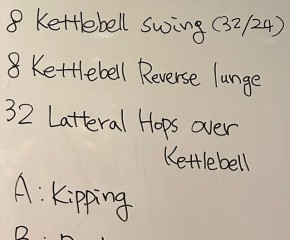 8 Kettlebell swing (32/24)
8 Kettlebell Reverse lunge
32 Latteral Hops over
Kettlebell
A: Kipping
B: